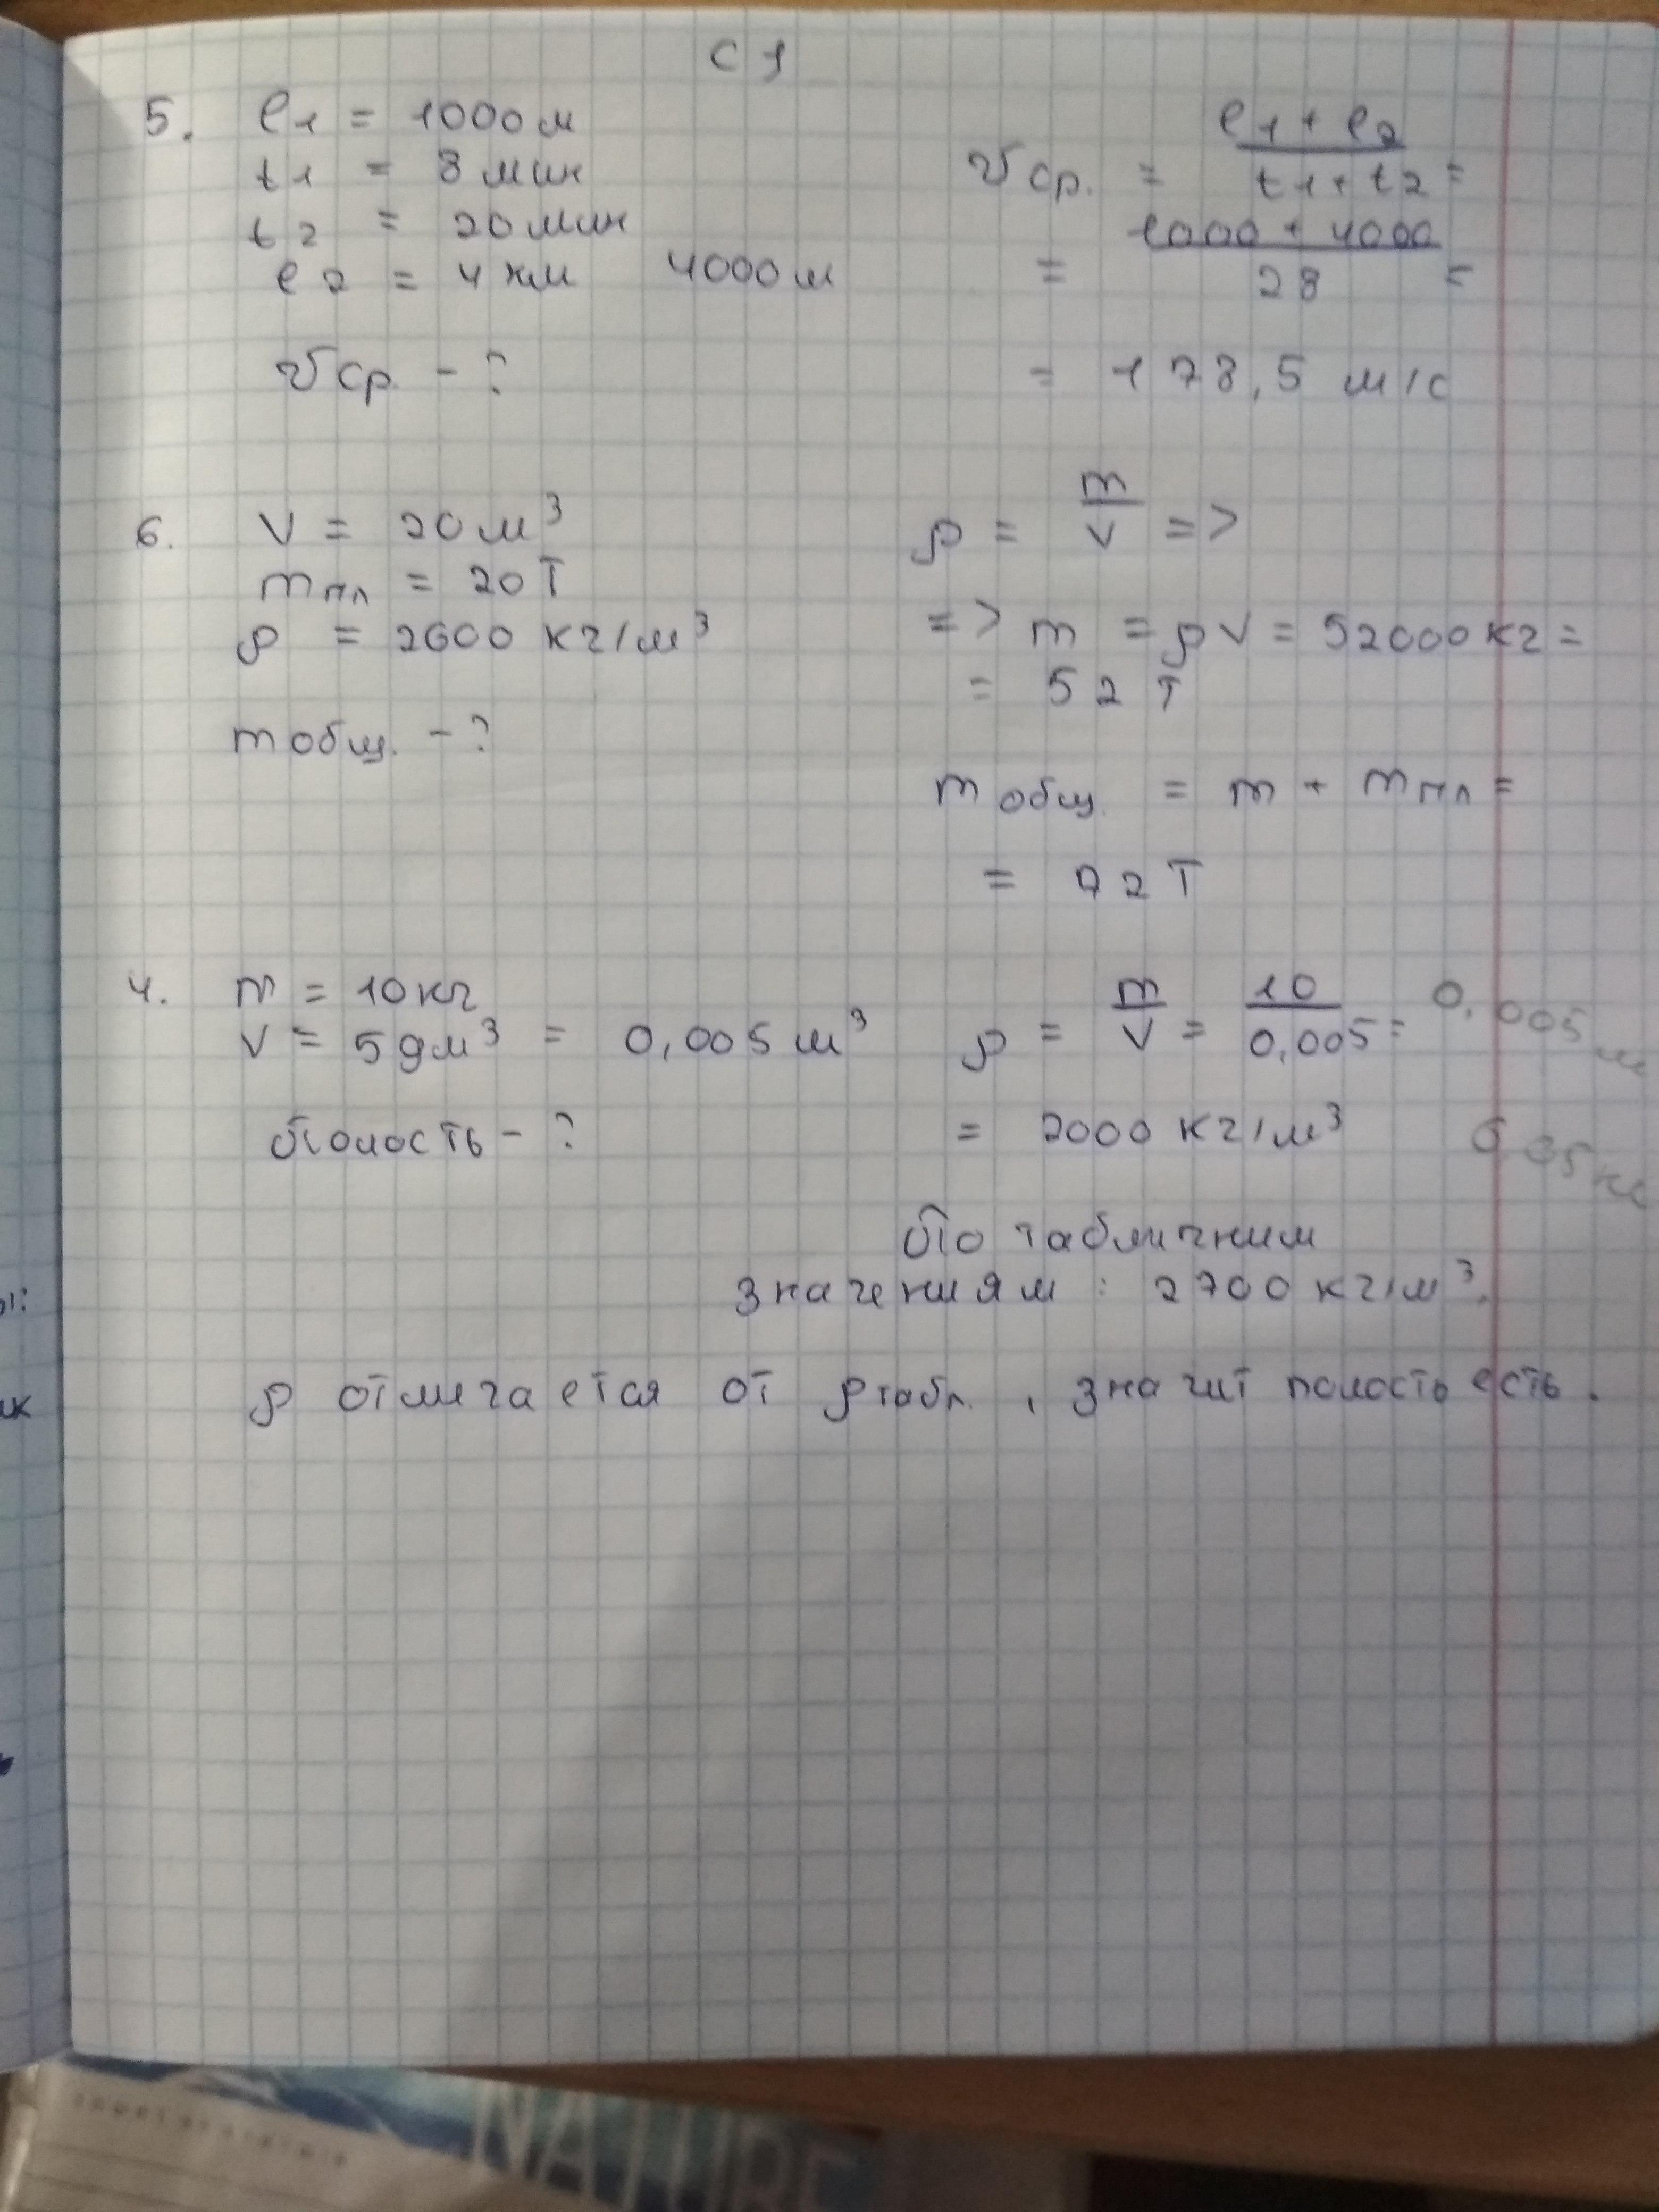 С 1
5. l1 = 1000 м
t1 = 8 мин
t2 = 20 мин
l2 = 4 км 4000 м
vср - ?
vср. = l1 + l2 / t1 + t2 =
= 1000 + 4000 / 28 =
= 178,5 м/с
6. V = 20 м³
mпл = 20 Т
ρ = 2600 кг/м³
mобщ. - ?
ρ = m / V =>
=> m = ρV = 52000 кг =
= 52 Т
mобщ. = m + mпл =
= 72 Т
4. m = 10 кг
V = 5 дм³ = 0,005 м³
Полость - ?
ρ = m / V = 10 / 0,005 =
= 2000 кг/м³
0,005
По табличним
значениям : 2700 кг/м³.
ρ отличается от ρтабл. , значит полость есть.
NATURE